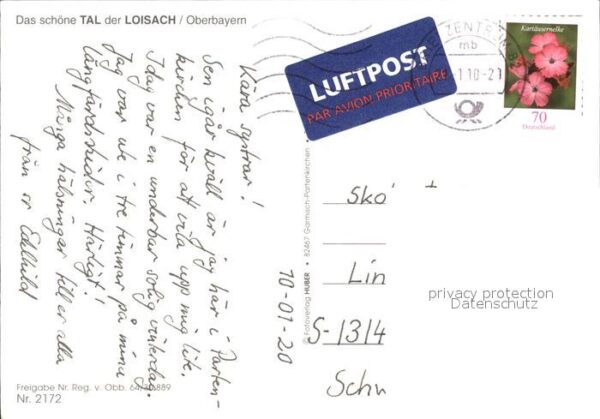 Das schöne TAL der LOISACH / Oberbayern
Kära systrar!
Sen igår kväll är jag här i Parten-
kirchen för att vila upp mig lite.
Idag var en underbar solig vinterdag.
Jag var we i tre timmar på mina
långfärdskidor. Härligt!
Många hälsningar till er alla
från er Edelhild
Freigabe Nr. Reg. v. Obb.
Nr. 2172
© Fotoverlag HUBER · 82467 Garmisch-Partenkirchen
10-01-20
LUFTPOST
PAR AVION PRIORITAIRE
mb
Kartäusernelke
70
Deutschland
Sko
Lin
S-1314
Schw
privacy protection
Datenschutz